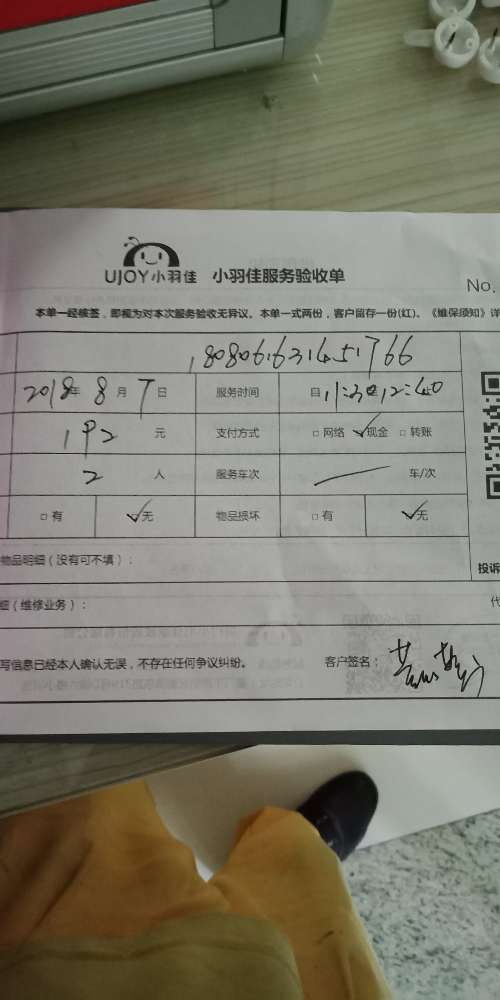 UJOY小羽佳 小羽佳服务验收单
No.
本单一经核签，即视为对本次服务验收无异议。本单一式两份，客户留存一份(红)、《维保须知》详
1808061631451766
2018年 8 月 7 日 服务时间 自 11:30至12:40
192 元 支付方式 □ 网络 ✓现金 □ 转账
2 人 服务车次 车/次
□ 有 ✓无 物品损坏 □ 有 ✓无
物品明细（没有可不填）： 投诉
细（维修业务）： 代
写信息已经本人确认无误，不存在任何争议纠纷。 客户签名：